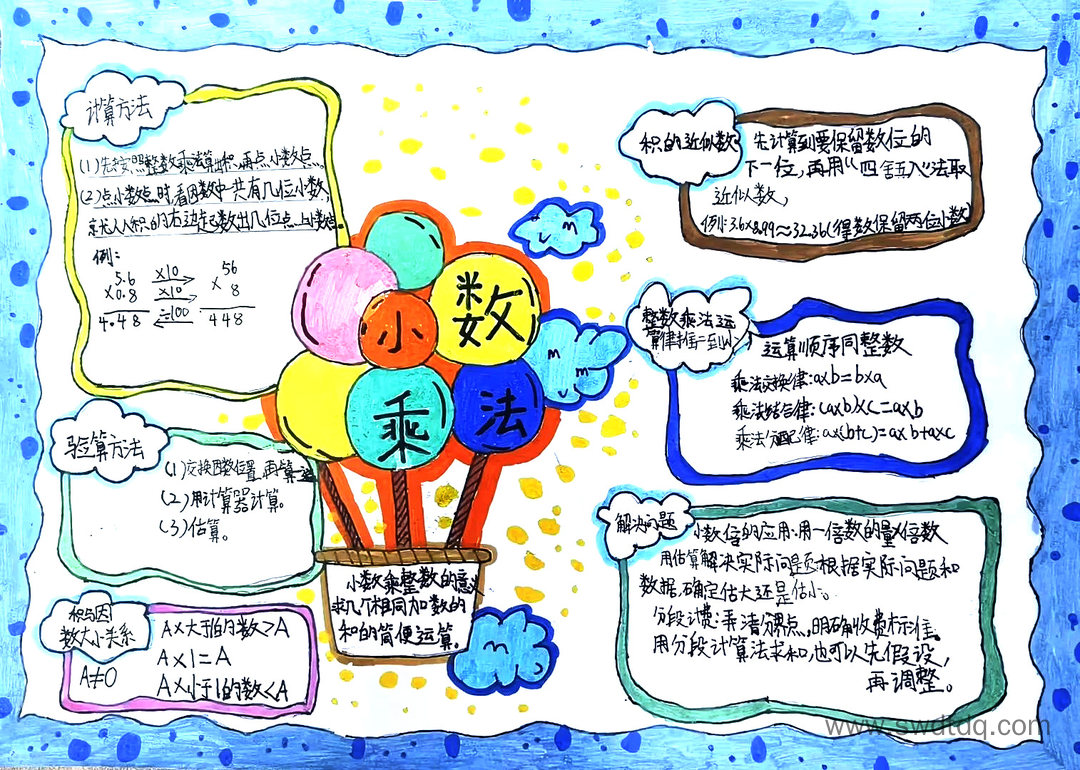 计算方法
(1)先按照整数乘法算出积,再点小数点。
(2)点小数点时,看因数中一共有几位小数,
就从积的右边起数出几位点上小数点。
例:
5.6 ×10 56
×0.8 ×10 × 8
4.48 ÷100 448
小数
乘法
验算方法
(1)交换因数位置,再算一遍
(2)用计算器计算。
(3)估算。
积与因
数大小关系
A≠0
A×大于1的数>A
A×1=A
A×小于1的数<A
小数乘整数的意义
求几个相同加数的
和的简便运算。
积的近似数
先计算到要保留数位的
下一位,再用“四舍五入”法取
近似数,
例:3.6×8.99≈32.36(得数保留两位小数)
整数乘法运
算律推广到小
运算顺序同整数
乘法交换律:a×b=b×a
乘法结合律:(a×b)×c=a×b
乘法分配律:a×(b+c)=a×b+a×c
解决问题
小数倍的应用:用一倍数的量×倍数
用估算解决实际问题根据实际问题和
数据,确定估大还是估小。
分段计费:弄清分界点,明确收费标准。
用分段计算法求和,也可以先假设,
再调整。
www.swdtdq.com